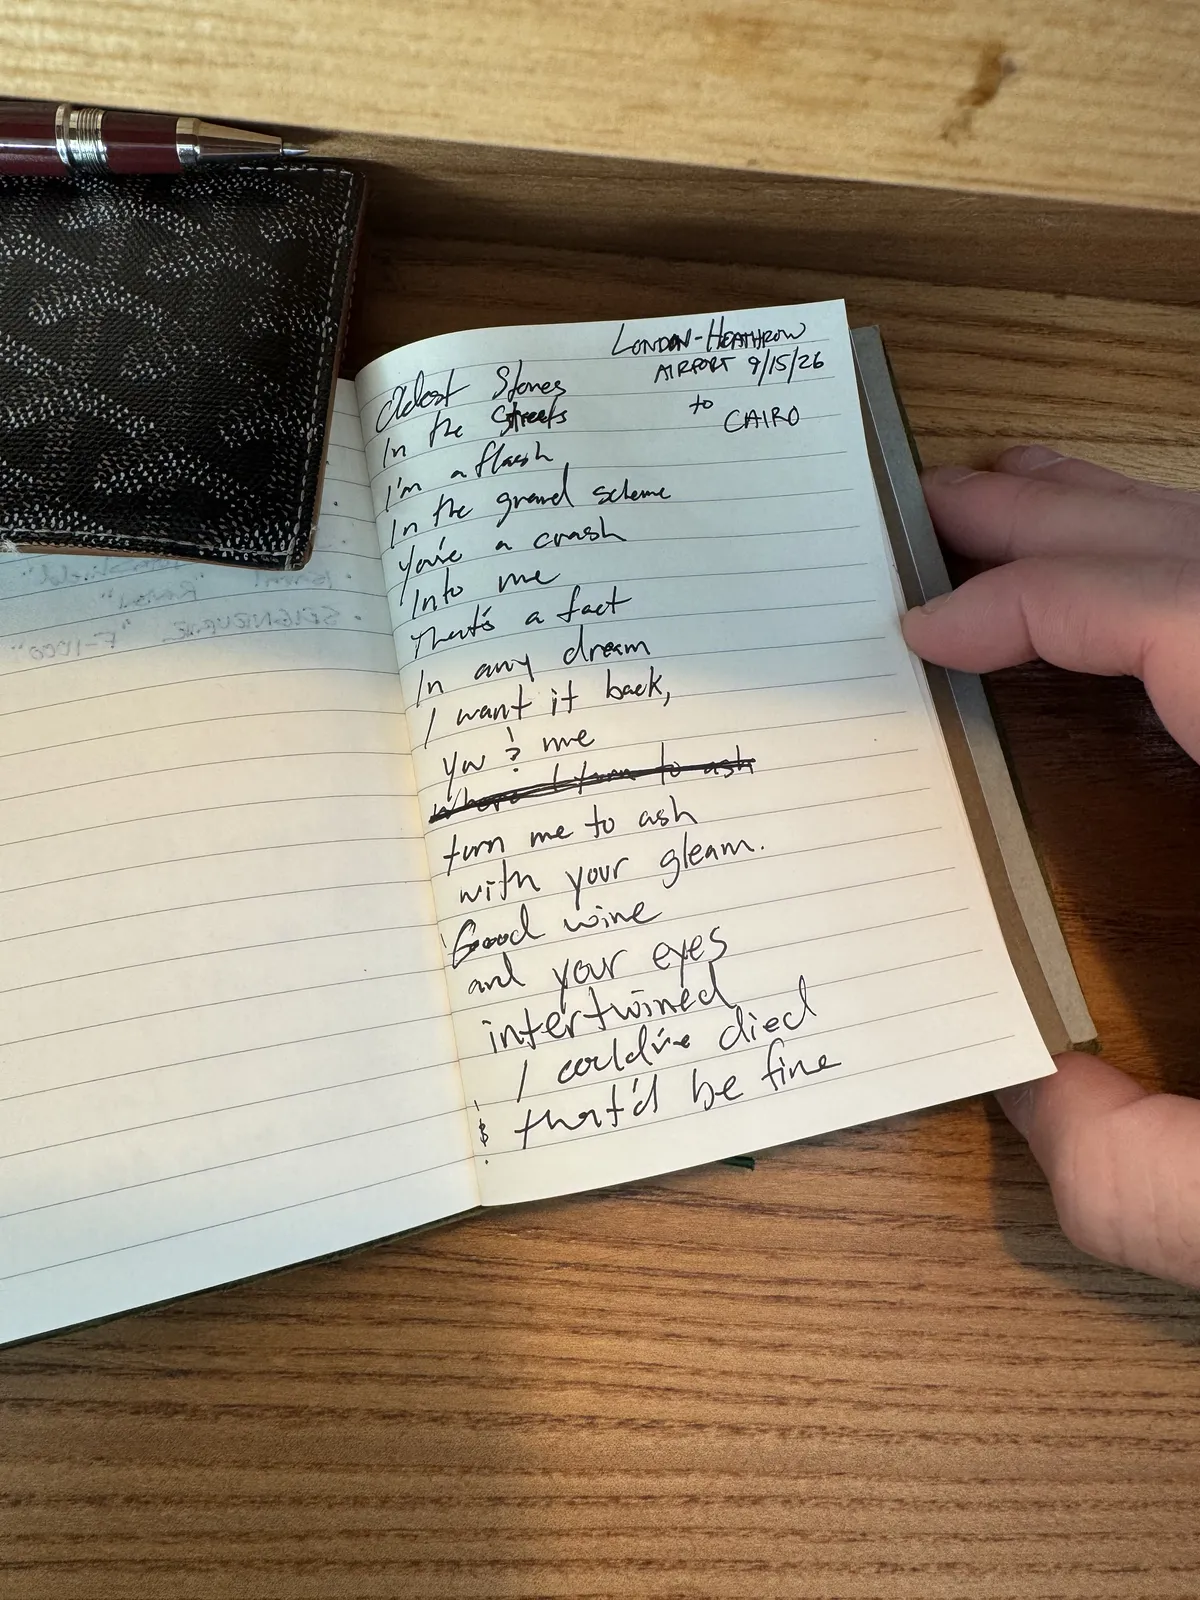 LONDON-HEATHROW
AIRPORT 9/15/26
to
CAIRO
Oldest Stones
In the Streets
I'm a flash
In the grand scheme
You're a crash
Into me
That's a fact
In any dream
I want it back,
you & me
where I turn to ash
turn me to ash
with your gleam.
Good wine
and your eyes
intertwined
I could've died
& that'd be fine
SEIGNEURIE "F-1000"